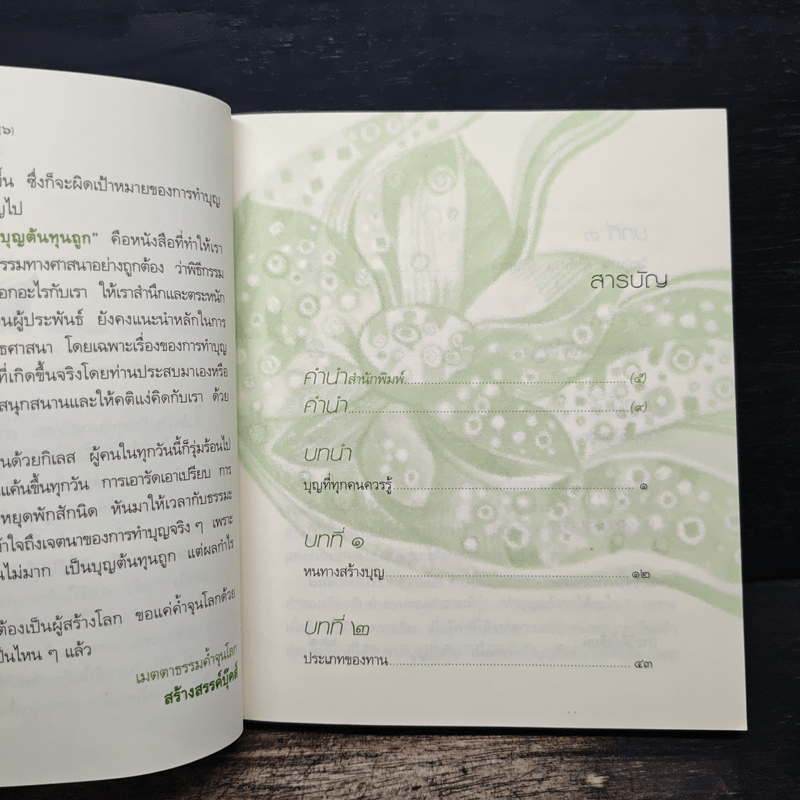 (๖)
ขึ้น ซึ่งก็จะผิดเป้าหมายของการทำบุญ
ไป
บุญต้นทุนถูก” คือหนังสือที่ทำให้เรา
ธรรมทางศาสนาอย่างถูกต้อง ว่าพิธีกรรม
อกอะไรกับเรา ให้เราสำนึกและตระหนัก
นผู้ประพันธ์ ยังคงแนะนำหลักในการ
ธศาสนา โดยเฉพาะเรื่องของการทำบุญ
ที่เกิดขึ้นจริงโดยท่านประสบมาเองหรือ
สนุกสนานและให้คติแง่คิดกับเรา ด้วย
นด้วยกิเลส ผู้คนในทุกวันนี้ก็รุ่มร้อนไป
แค้นขึ้นทุกวัน การเอารัดเอาเปรียบ การ
หยุดพักสักนิด หันมาให้เวลากับธรรมะ
้าใจถึงเจตนาของการทำบุญจริง ๆ เพราะ
นไม่มาก เป็นบุญต้นทุนถูก แต่ผลกำไร
ต้องเป็นผู้สร้างโลก ขอแค่ค้ำจุนโลกด้วย
เป็นไหน ๆ แล้ว
เมตตาธรรมค้ำจุนโลก
สร้างสรรค์บุ๊คส์
สารบัญ
คำนำสำนักพิมพ์ (๕)
คำนำ (๙)
บทนำ
บุญที่ทุกคนควรรู้ ๑
บทที่ ๑
หนทางสร้างบุญ ๑๒
บทที่ ๒
ประเภทของทาน ๔๓